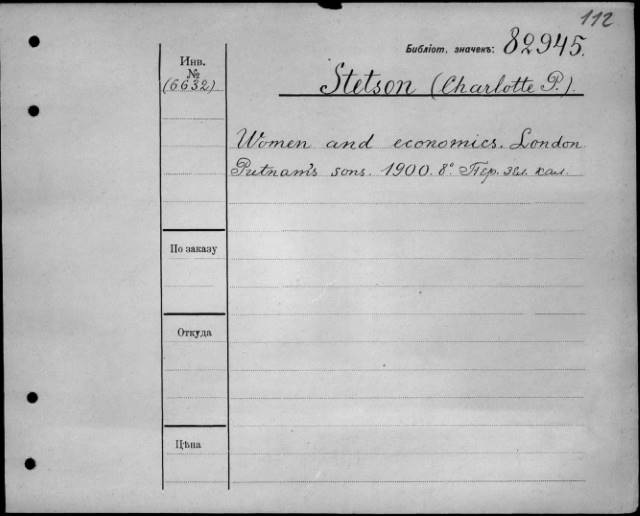 112
Библіот. значекъ: 82945.
Инв.
№
(6632)
Stetson (Charlotte P.).
Women and economics. London
Putnam's sons. 1900. 8°. Пер. зел. кал.
По заказу
Откуда
Цѣна